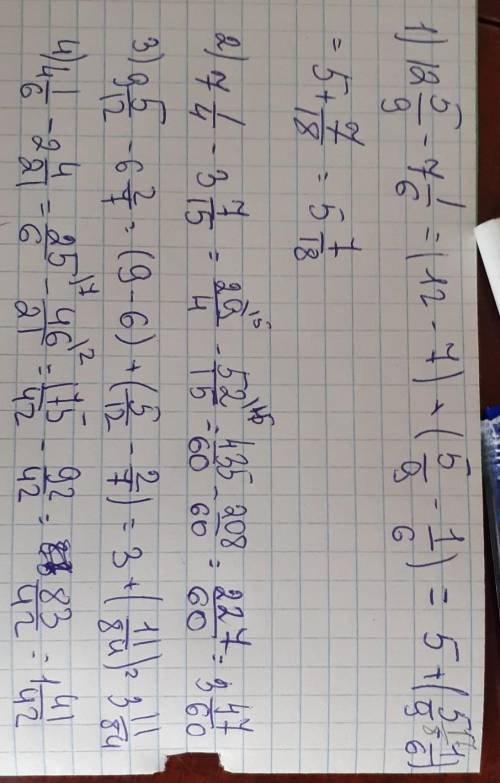 1) 12 5/9 - 7 1/6 = (12 - 7) + (5/9 - 1/6) = 5 + (5/9 - 1/6)
= 5 + 7/18 = 5 7/18
2) 7 1/4 - 3 7/15 = 29/4 \15 - 52/15 = 435/60 - 208/60 = 227/60 = 3 47/60
3) 9 5/12 - 6 2/7 = (9 - 6) + (5/12 - 2/7) = 3 + (11/84) = 3 11/84
4) 4 1/6 - 2 4/21 = 25/6 \7 - 46/21 \2 = 175/42 - 92/42 = 83/42 = 1 41/42